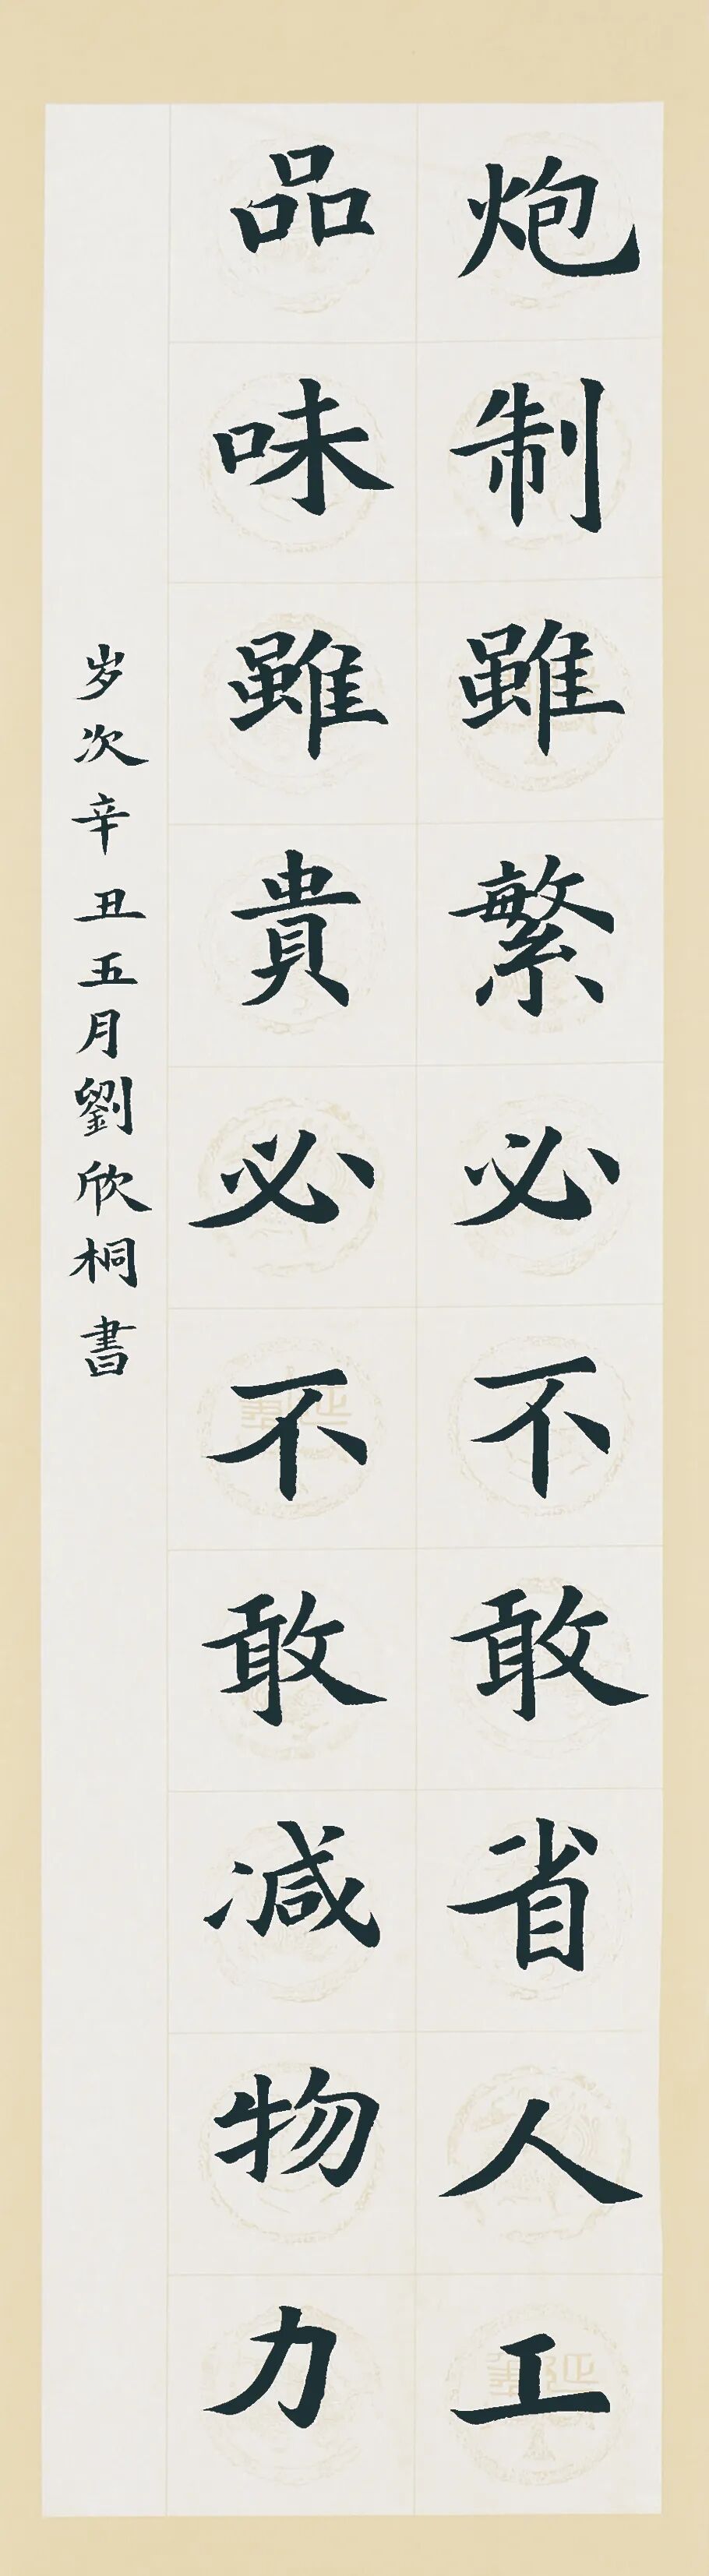 炮制雖繁必不敢省人工
品味雖貴必不敢減物力
岁次辛丑五月劉欣桐書